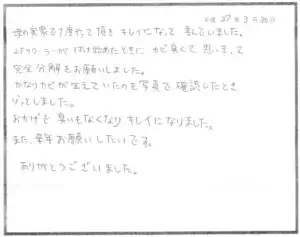 平成 27年 3月 30日
母の実家で1度やって頂き キレイになって 喜んでいました。
エアコンクーラーが 付け始めたときに カビ臭くて 思いきって
完全分解をお願いしました。
かなりカビが生えていたのも写真で確認したとき
ゾッとしました。
おかげで 臭いもなくなり キレイになりました。
また、来年お願いしたいです。
ありがとうございました。